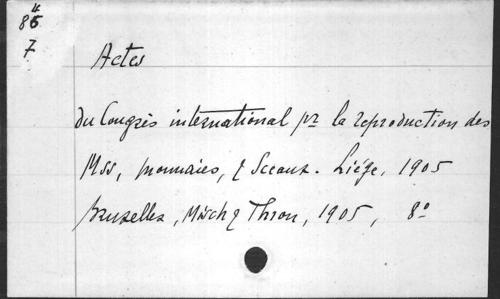 86
7
Actes
du Congrès international pr la reproduction des
Mss, monnaies, & Sceaux. Liége, 1905
Bruxelles, Misch & Thron, 1905, 8°